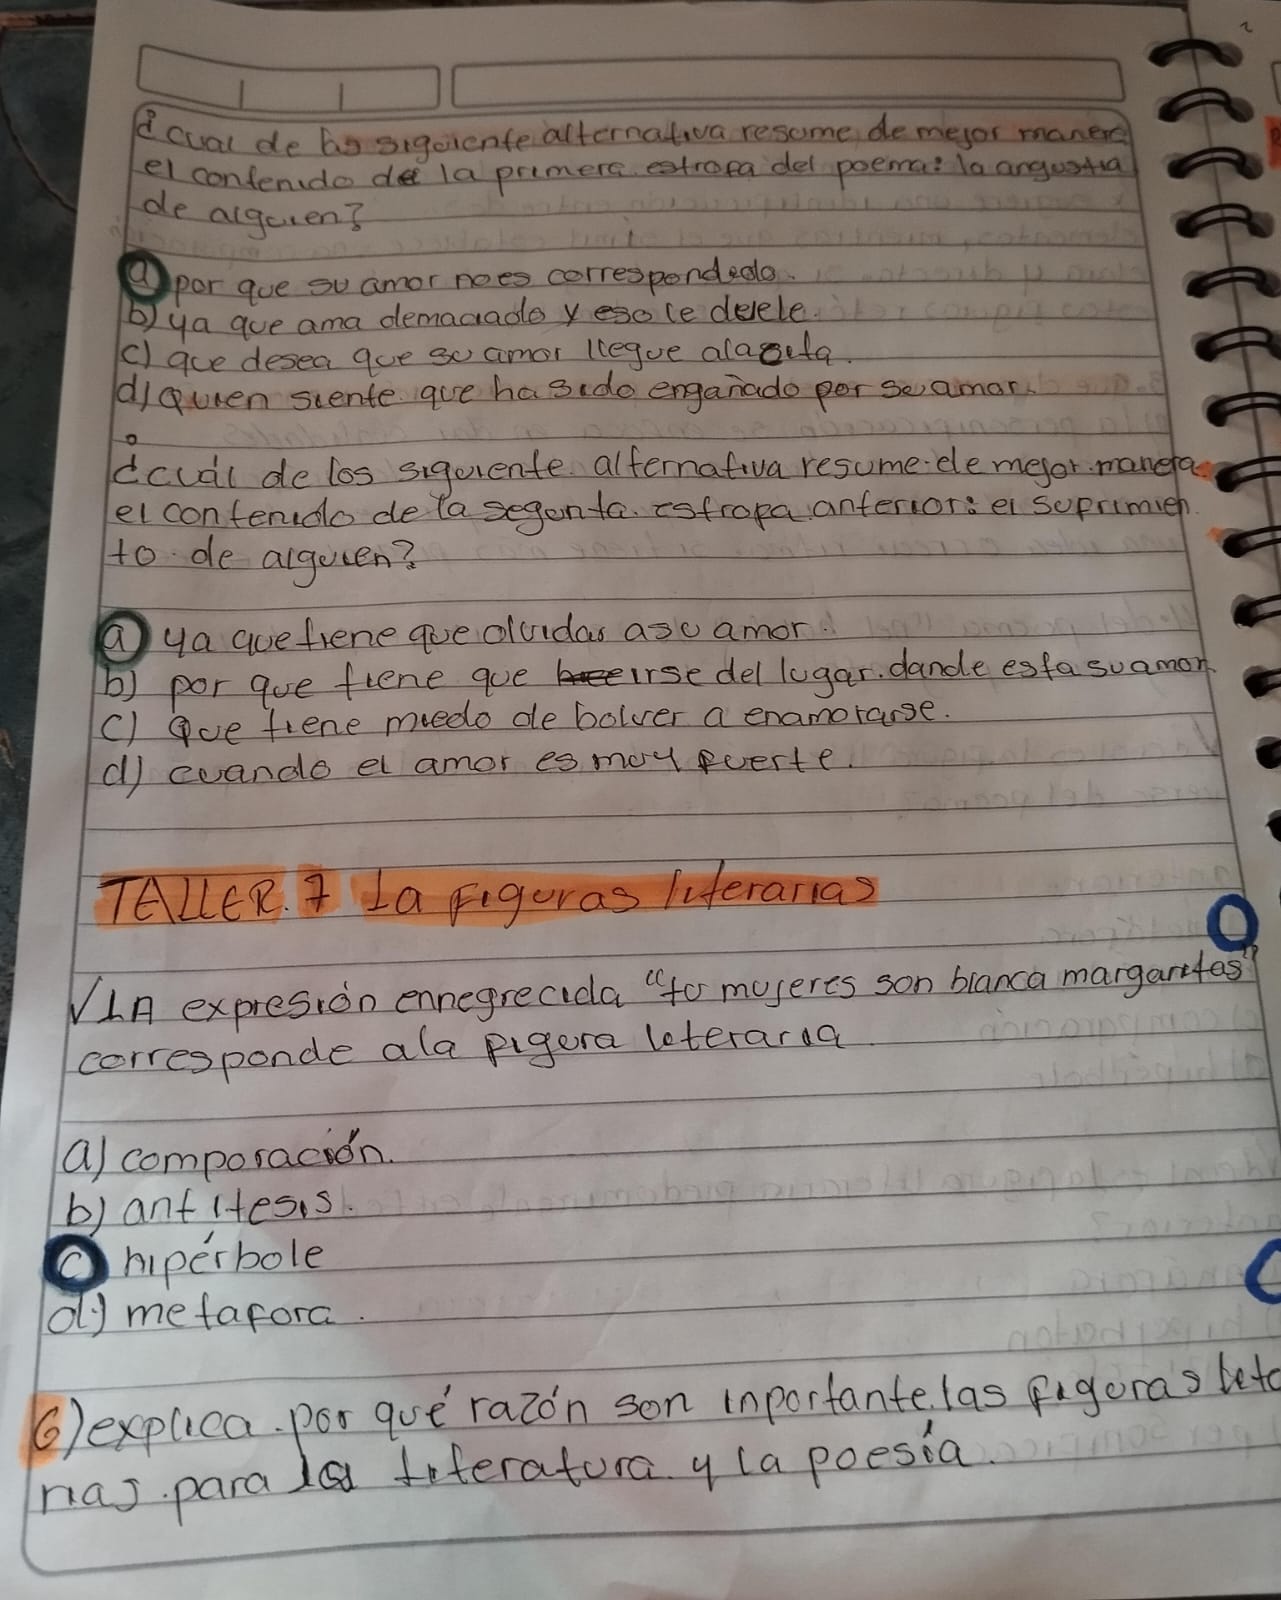 ¿cual de las siguiente alternativa resume de mejor manera
el contenido de la primera estrofa del poema: la angustia
de alguien?
a) por que su amor no es correspondedo.
b) ya que ama demaciado y eso le duele.
c) que desea que su amor llegue ala
d) Quien siente que ha sido engañado por su amor.
¿cuál de los siguiente alternativa resume de mejor manera
el contenido de la segunta estrofa anterior: el suprimien
to de alguien?
a) ya que tiene que olvidar a su amor.
b) por que tiene que irse del lugar dande esta su amor.
c) Que tiene miedo de bolver a enamorarse.
d) cuando el amor es muy fuerte.
TALLER. 7 La figuras literarias
√ LA expresión ennegrecida "tu mujeres son blanca margaritas"
corresponde ala figura leteraria
a) comparación.
b) antitesis.
c) hipérbole
d) metafora.
6) explica por qué razón son inportante las figuras lete
rias para la literatura y la poesía.